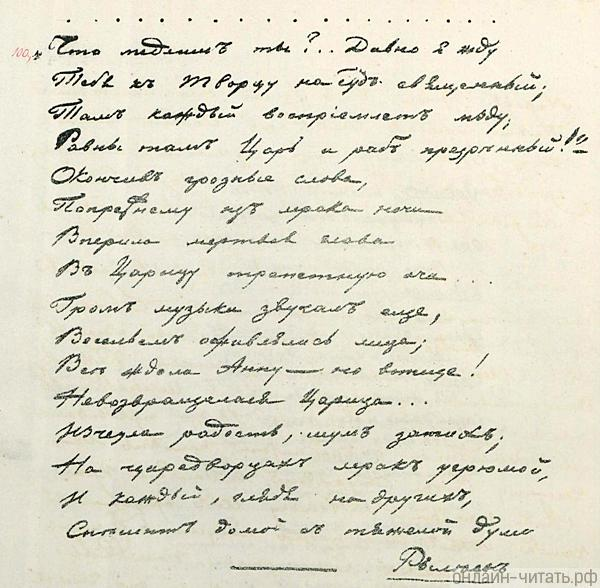 100.
Что медлишь ты?.. Давно я жду
Тебя къ Творцу на судъ священный;
Тамъ каждый воспріемлетъ мзду;
Равны тамъ Царь и рабъ презрѣнный!"
Окончивъ грозные слова,
Попрежнему изъ мрака ночи
Вперила мертвая глава
Въ Царицу трепетную очи...
Громъ музыки звучалъ еще,
Весельемъ оживлялись лица;
Всѣ ждали Анну — но вотще!
Невозвращалася Царица...
Изчезла радость, шумъ затихъ;
На царедворцахъ мракъ угрюмой,
И каждый, глядя на другихъ,
Спѣшитъ домой съ тяжелой думой
Рылѣевъ
онлайн-читать.рф